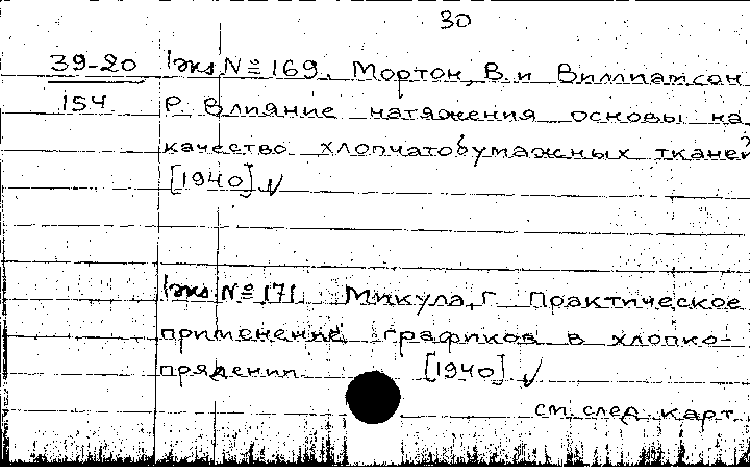 30
39-20 1экз № 169. Мортон, В. и Виллиамсон
154 Р. Влияние натяжения основы на
качество хлопчатобумажных тканей
[1940] √
1экз № 171. Микула, Г. Практическое
применение графиков в хлопко-
прядении [1940] √
см. след. карт.